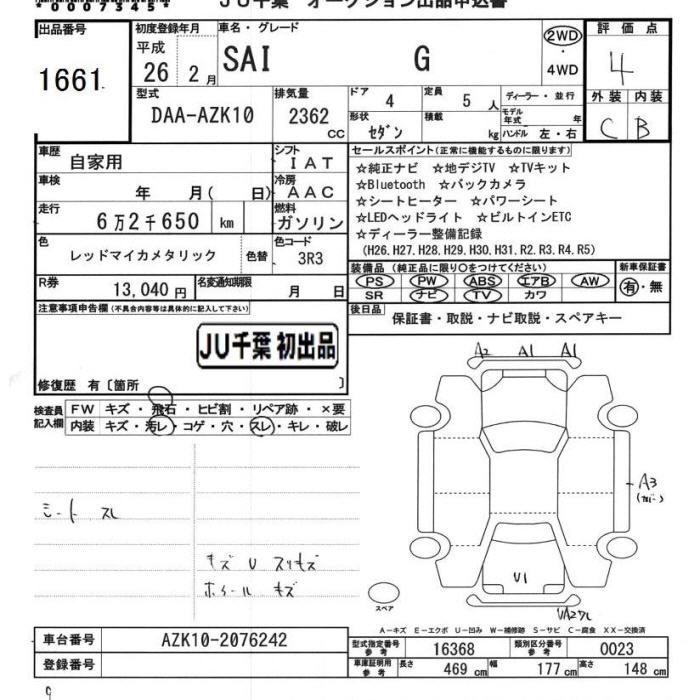 *00073451*
JU千葉 オークション出品申込書
出品番号
1661
初度登録年月
平成
26 2月
車名・グレード
SAI G
2WD
・
4WD
評価点
4
外装 内装
C B
型式
DAA-AZK10
排気量
2362 CC
ドア 4
定員 5 人
形状 セダン
積載 kg
ディーラー・並行
モデル年式 年
ハンドル 左・右
車歴 自家用
シフト IAT
車検 年 月( 日)
冷房 AAC
走行 6万2千650 km
燃料 ガソリン
色 レッドマイカメタリック 色替
色コード 3R3
R券 13,040 円
名変通知期限 月 日
セールスポイント(正常に機能するものに限ります)
☆純正ナビ ☆地デジTV ☆TVキット
☆Bluetooth ☆バックカメラ
☆シートヒーター ☆パワーシート
☆LEDヘッドライト ☆ビルトインETC
☆ディーラー整備記録
(H26.H27.H28.H29.H30.H31.R2.R3.R4.R5)
装備品(純正品に限り○をつけてください)
PS PW ABS エアB AW
SR ナビ TV カワ
新車保証書
有・無
後日品 保証書・取説・ナビ取説・スペアキー
注意事項申告欄(不具合内容等は具体的に記入して下さい)
JU千葉 初出品
修復歴 有〔箇所 〕
検査員記入欄
FW キズ・飛石・ヒビ割・リペア跡・×要
内装 キズ・汚レ・コゲ・穴・スレ・キレ・破レ
シート スレ
キズ U スリキズ
ホイール キズ
A2 A1 A1
A3
U1
スペア
A-キズ E-エクボ U-凹み W-補修跡 S-サビ C-腐食 XX-交換済
車台番号 AZK10-2076242
登録番号
型式指定番号 参考 16368
類別区分番号 参考 0023
車庫証明用 参考 長さ 469 cm 幅 177 cm 高さ 148 cm